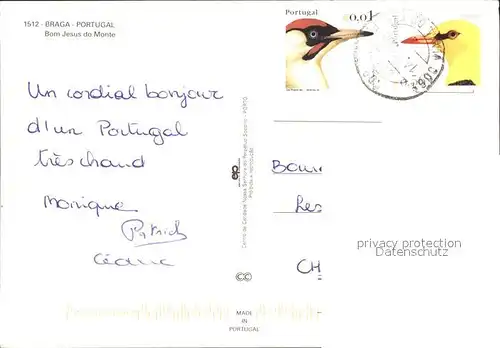 1512 - BRAGA - PORTUGAL
Bom Jesus do Monte
Portugal
0,01
Portugal
Un cordial bonjour
d'un Portugal
très chaud
Monique
Patrick
Cédric
Les
CH
privacy protection
Datenschutz
MADE
IN
PORTUGAL